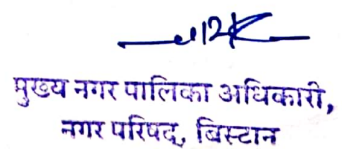 मुख्य नगर पालिका अधिकारी,
नगर परिषद्, बिस्टान